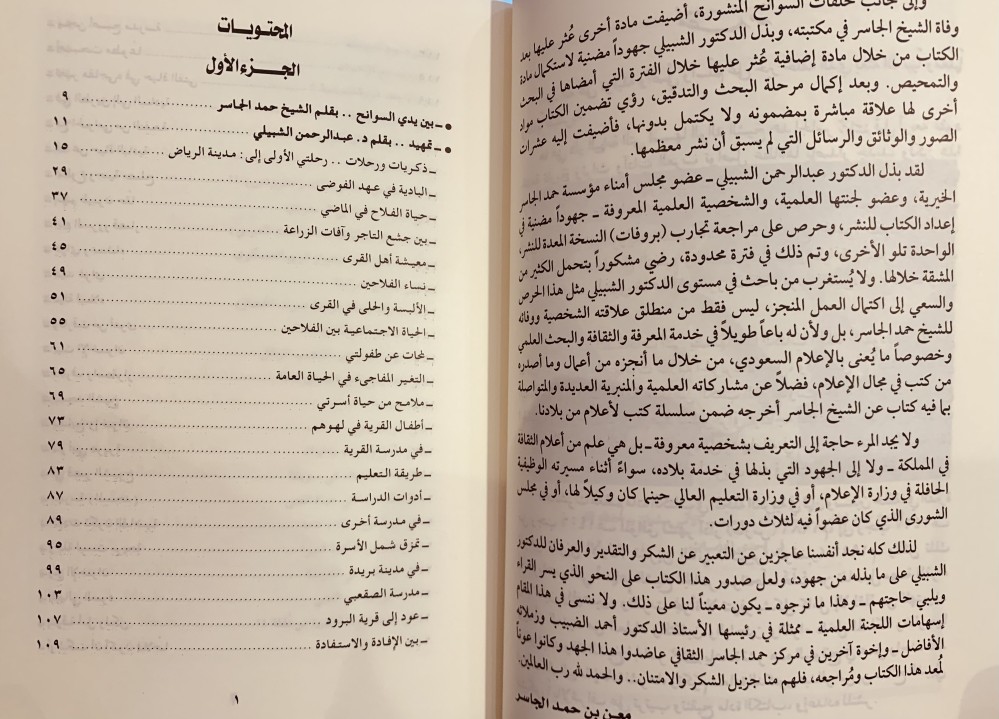 وإلى جانب حلقات السوانح المنشورة، أضيفت مادة أخرى عُثر عليها بعد
وفاة الشيخ الجاسر في مكتبته، وبذل الدكتور الشبيلي جهوداً مضنية لاستكمال مادة
الكتاب من خلال مادة إضافية عُثر عليها خلال الفترة التي أمضاها في البحث
والتمحيص. وبعد إكمال مرحلة البحث والتدقيق، رؤي تضمين الكتاب مواد
أخرى لها علاقة مباشرة بمضمونه ولا يكتمل بدونها، فأضيفت إليه عشرات
الصور والوثائق والرسائل التي لم يسبق أن نشر معظمها.
لقد بذل الدكتور عبدالرحمن الشبيلي ـ عضو مجلس أمناء مؤسسة حمد الجاسر
الخيرية، وعضو لجنتها العلمية، والشخصية العلمية المعروفة ـ جهوداً مضنية في
إعداد الكتاب للنشر، وحرص على مراجعة تجارب (بروفات) النسخة المعدة للنشر،
الواحدة تلو الأخرى، وتم ذلك في فترة محدودة، رضي مشكوراً بتحمل الكثير من
المشقة خلالها. ولا يُستغرب من باحث في مستوى الدكتور الشبيلي مثل هذا الحرص
والسعي إلى اكتمال العمل المنجز، ليس فقط من منطلق علاقته الشخصية ووفائه
للشيخ حمد الجاسر، بل ولأن له باعاً طويلاً في خدمة المعرفة والثقافة والبحث العلمي
وخصوصاً ما يُعنى بالإعلام السعودي، من خلال ما أنجزه من أعمال وما أصدره
من كتب في مجال الإعلام، فضلاً عن مشاركاته العلمية والمنبرية العديدة والمتواصلة
بما فيه كتاب عن الشيخ الجاسر أخرجه ضمن سلسلة كتب لأعلام من بلادنا.
ولا يجد المرء حاجة إلى التعريف بشخصية معروفة ـ بل هي علم من أعلام الثقافة
في المملكة ـ ولا إلى الجهود التي بذلها في خدمة بلاده، سواءً أثناء مسيرته الوظيفية
الحافلة في وزارة الإعلام، أو في وزارة التعليم العالي حينما كان وكيلاً لها، أو في مجلس
الشورى الذي كان عضواً فيه لثلاث دورات.
لذلك كله نجد أنفسنا عاجزين عن التعبير عن الشكر والتقدير والعرفان للدكتور
الشبيلي على ما بذله من جهود، ولعل صدور هذا الكتاب على النحو الذي يسر القراء
ويلبي حاجتهم ـ وهذا ما نرجوه ـ يكون معيناً لنا على ذلك. ولا ننسى في هذا المقام
إسهامات اللجنة العلمية ـ ممثلة في رئيسها الأستاذ الدكتور أحمد الضبيب وزملائه
الأفاضل ـ وإخوة آخرين في مركز حمد الجاسر الثقافي عاضدوا هذا الجهد وكانوا عوناً
لمُعد هذا الكتاب ومُراجعه، فلهم منا جزيل الشكر والامتنان.. والحمد لله رب العالمين.
معن بن حمد الجاسر
المحتويات
الجزء الأول
● ـ بين يدي السوانح .. بقلم الشيخ حمد الجاسر ٩
● ـ تمهيد .. بقلم د. عبدالرحمن الشبيلي ١١
ـ ذكريات ورحلات .. رحلتي الأولى إلى: مدينة الرياض ١٥
ـ البادية في عهد الفوضى ٢٩
ـ حياة الفلاح في الماضي ٣٧
ـ بين جشع التاجر وآفات الزراعة ٤١
ـ معيشة أهل القرى ٤٥
ـ نساء الفلاحين ٤٩
ـ الألبسة والحلى في القرى ٥١
ـ الحياة الاجتماعية بين الفلاحين ٥٥
ـ لمحات عن طفولتي ٦١
ـ التغير المفاجىء في الحياة العامة ٦٥
ـ ملامح من حياة أسرتي ٦٩
ـ أطفال القرية في لهوهم ٧٣
ـ في مدرسة القرية ٧٩
ـ طريقة التعليم ٨٣
ـ أدوات الدراسة ٨٧
ـ في مدرسة أخرى ٨٩
ـ تمزق شمل الأسرة ٩٥
ـ في مدينة بريدة ٩٩
ـ مدرسة الصقعبي ١٠٣
ـ عود إلى قرية البرود ١٠٧
ـ بين الإفادة والاستفادة ١٠٩
١